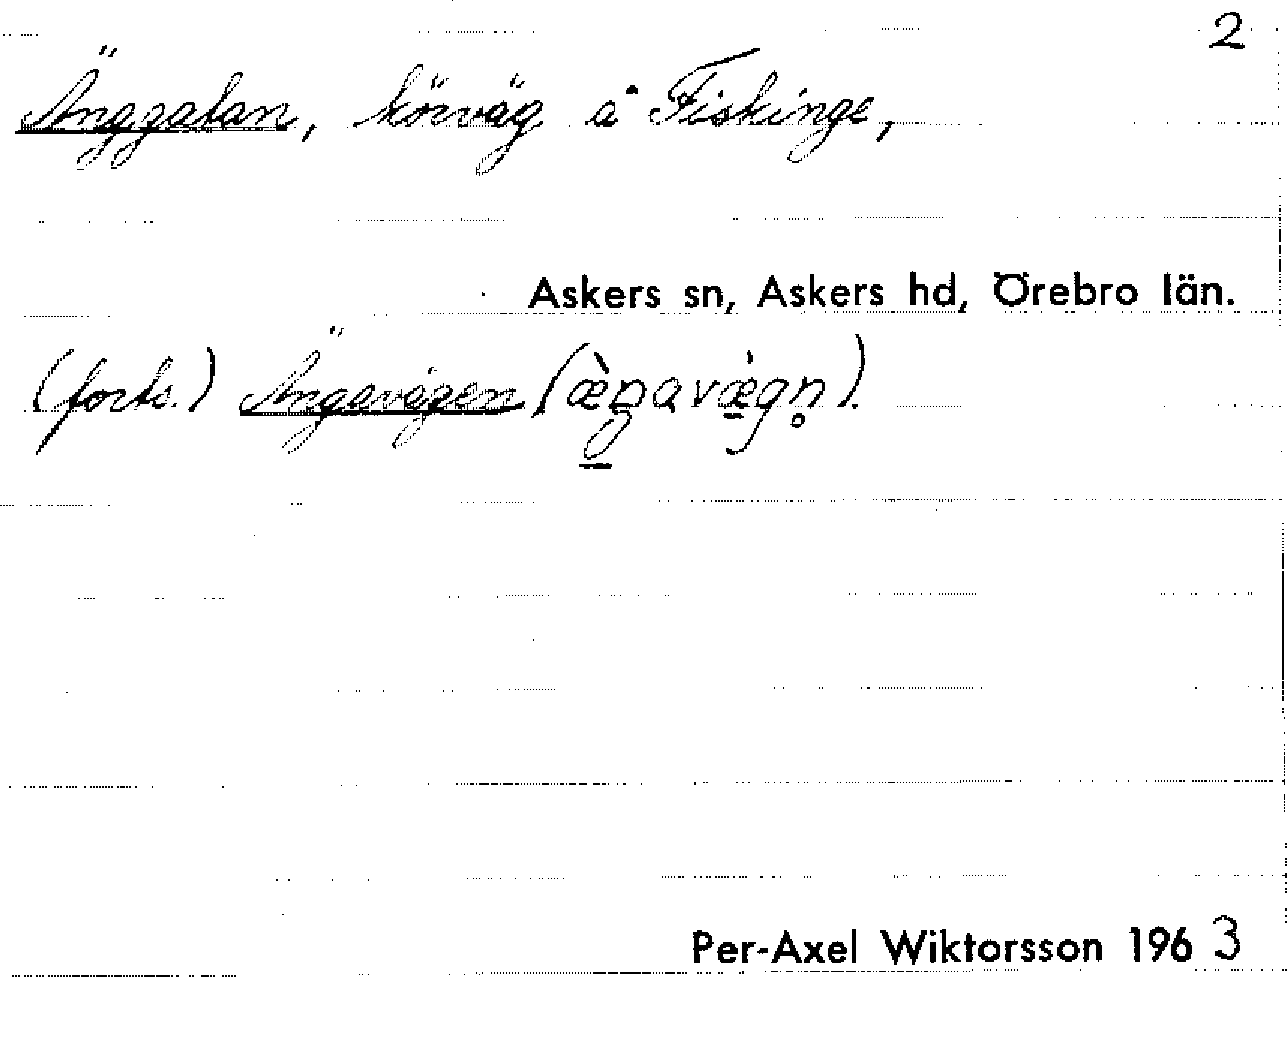 2
Änggatan, körväg å Fiskinge,
Askers sn, Askers hd, Örebro län.
(forts.) Ängevägen (æ̀ŋavæ̀gn̥).
Per-Axel Wiktorsson 1963